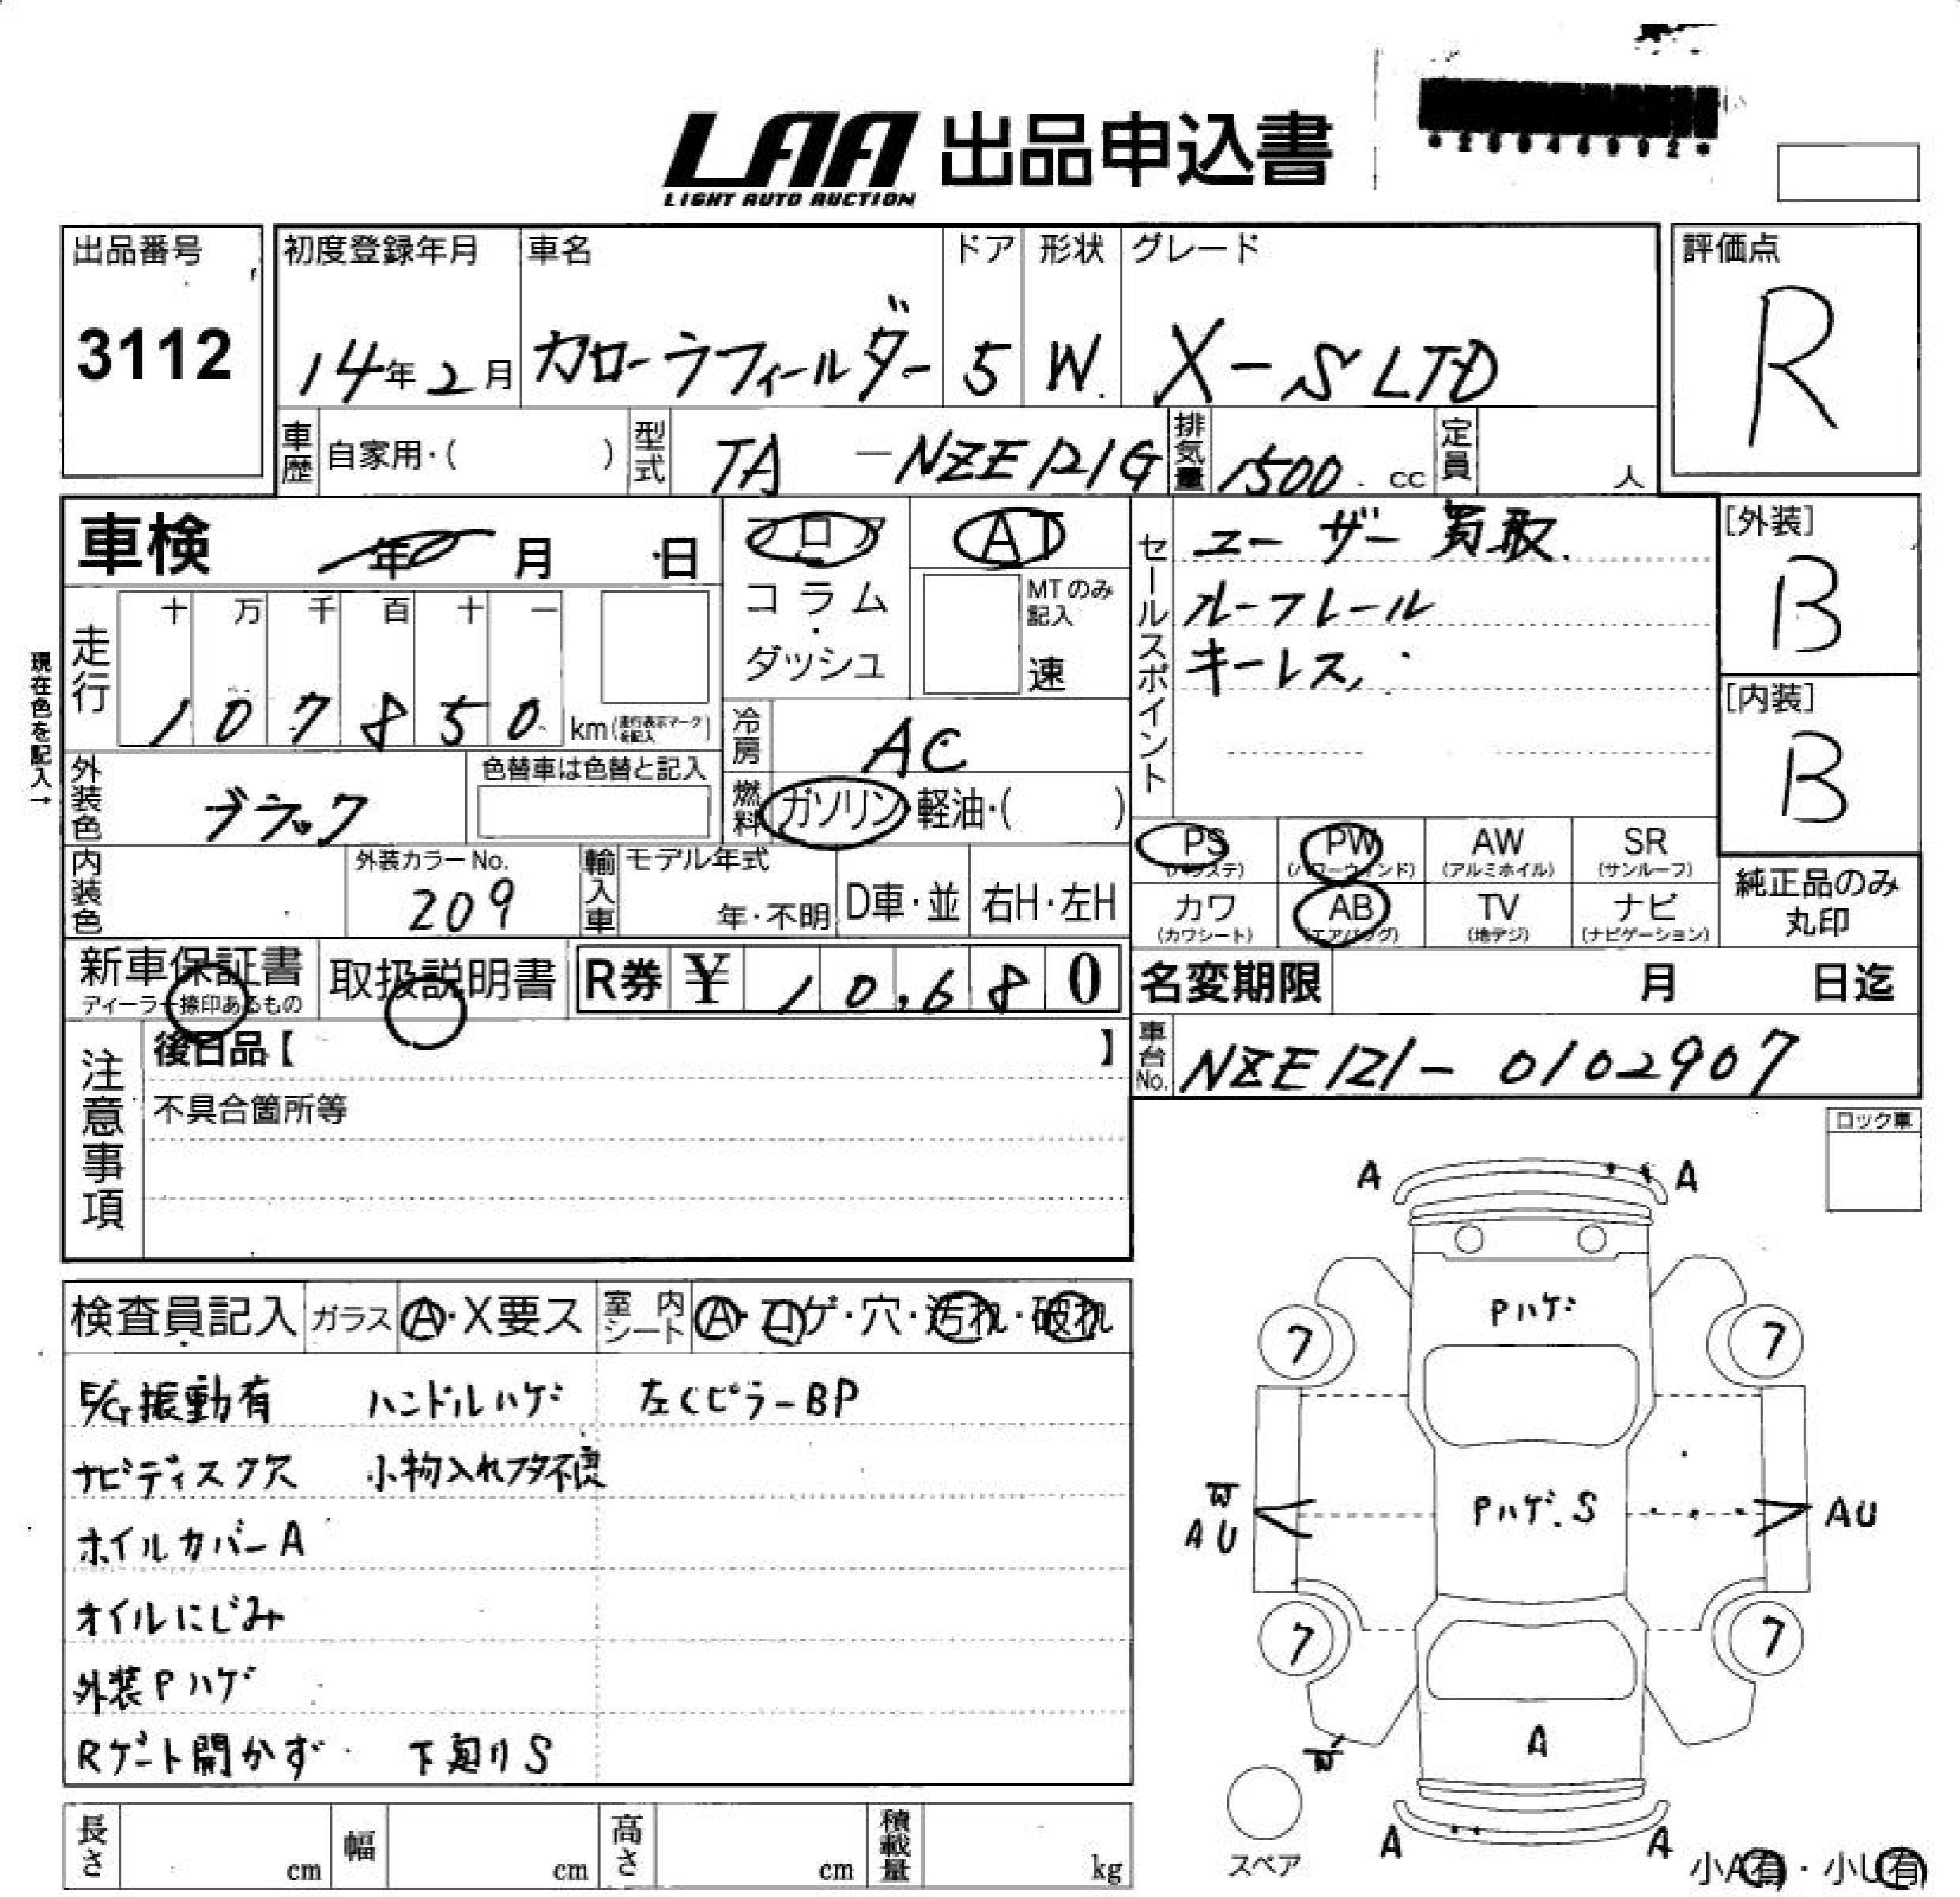 LAA 出品申込書
LIGHT AUTO AUCTION
出品番号
3112
初度登録年月
14年2月
車名
カローラフィールダー
ドア
5
形状
W.
グレード
X-S LTD
評価点
R
車歴
自家用・( )
型式
TA -NZE121G
排気量
1500 cc
定員
人
車検
年 月 日
フロア
コラム・
ダッシュ
AT
MTのみ記入
速
セールスポイント
ユーザー買取.
ルーフレール
キーレス,
[外装]
B
[内装]
B
現在色を記入→
走行
十 万 千 百 十 一
1 0 7 8 5 0
km(走行表示マークを記入)
冷房
AC
外装色
ブラック
色替車は色替と記入
燃料
ガソリン・軽油・( )
PS (パワステ)
PW (パワーウィンド)
AW (アルミホイル)
SR (サンルーフ)
カワ (カワシート)
AB (エアバッグ)
TV (地デジ)
ナビ (ナビゲーション)
純正品のみ
丸印
内装色
外装カラーNo.
209
輸入車
モデル年式
年・不明
D車・並
右H・左H
新車保証書
ディーラー捺印あるもの
取扱説明書
R券 ¥ 10,680
名変期限 月 日迄
車台No.
NZE121-0102907
注意事項
後日品【 】
不具合箇所等
ロック車
検査員記入
ガラス
A・X要ス
室内シート
A・コゲ・穴・汚れ・破れ
E/G振動有 ハンドルハゲ 左Cピラー BP
ナビディスク欠 小物入れフタ不良
ホイルカバーA
オイルにじみ
外装Pハゲ
Rゲート開かず 下廻りS
A A
Pハゲ
7 7
W
AU
Pハゲ.S
AU
7 7
W
A
A A
スペア
小A有・小U有
長さ cm
幅 cm
高さ cm
積載量 kg